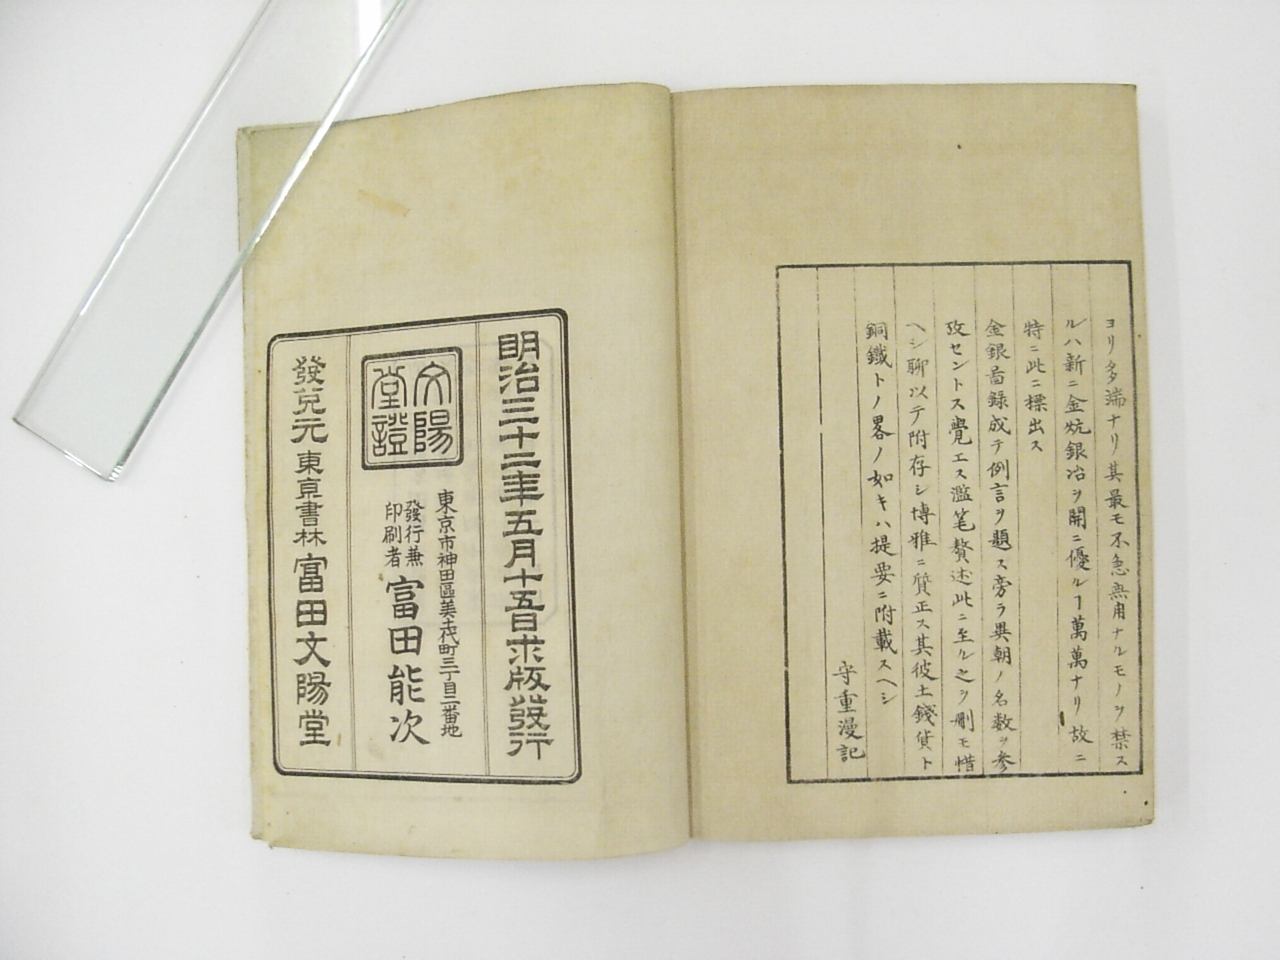 ヨリ多端ナリ其最モ不急無用ナルモノヲ禁ス
ルハ新ニ金炕銀冶ヲ開ニ優ルヿ萬萬ナリ故ニ
特ニ此ニ標出ス
金銀啚録成テ例言ヲ題ス旁ラ異朝ノ名数ヲ参
攷セントス覺エス濫笔贅述此ニ至ル之ヲ刪モ惜
ヘシ聊以テ附存シ博雅ニ質正ス其彼土錢貨ト
銅鐵トノ畧ノ如キハ提要ニ附載スヘシ
守重漫記
明治三十二年五月十五日求版發行
文陽堂證
東京市神田區美土代町三丁目二番地
發行兼印刷者 富田能次
發兌元 東亰書林 富田文陽堂